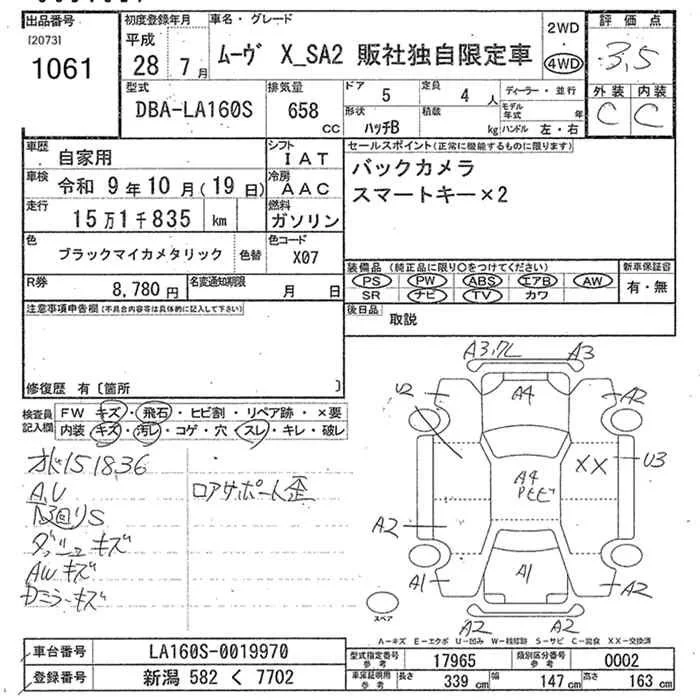 出品番号
[2073]
1061
初度登録年月
平成
28年 7月
車名・グレード
ムーヴ X_SA2 販社独自限定車
2WD
・
4WD
評価点
3.5
外装 内装
C C
型式
DBA-LA160S
排気量
658
cc
ドア
5
定員
4 人
形状
ハッチB
積載
kg
ディーラー・並行
モデル年式 年
ハンドル 左・右
車歴
自家用
シフト
IAT
車検
令和 9年10月(19日)
冷房
AAC
走行
15万1千835 km
燃料
ガソリン
色
ブラックマイカメタリック
色替
色コード
X07
R券
8,780 円
名変通知期限
月 日
セールスポイント(正常に機能するものに限ります)
バックカメラ
スマートキー×2
装備品 (純正品に限り○をつけてください)
PS PW ABS エアB AW
SR ナビ TV カワ
新車保証書
有・無
後日品
取説
注意事項申告欄(不具合内容等は具体的に記入して下さい)
修復歴 有〔箇所 〕
検査員
記入欄
FW キズ・飛石・ヒビ割・リペア跡・×要
内装 キズ・汚レ・コゲ・穴・スレ・キレ・破レ
151836
A,U
下回りS
ダッシュキズ
AWキズ
ロアサポート歪
A3
A3
A4
U2
A2
A4
XX
U3
A2
A1
A1
A2
A2
A2
スペア
A-キズ E-エクボ U-凹み W-板修跡 S-サビ C-腐食 XX-交換済
車台番号
LA160S-0019970
登録番号
新潟 582 く 7702
型式指定番号
参考
17965
類別区分番号
参考
0002
車庫証明用
参考
長さ 339 cm
幅 147 cm
高さ 163 cm